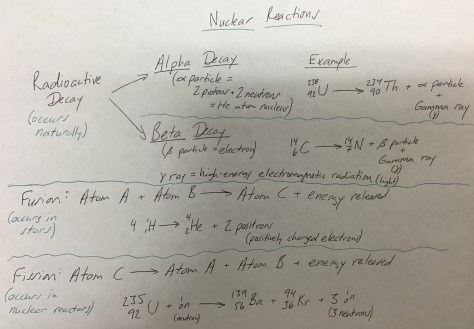 Nuclear Reactions
Alpha Decay
(α particle =
2 protons + 2 neutrons
= He atom nucleus)
Example
²³⁸₉₂U → ²³⁴₉₀Th + α particle
+
Gamma ray
(γ)
Radioactive
Decay
(occurs
naturally)
Beta Decay
(β particle = electron)
¹⁴₆C → ¹⁴₇N + β particle
+
Gamma ray
(γ)
γ ray = high-energy electromagnetic radiation (light)
Fusion: Atom A + Atom B → Atom C + energy released
(occurs in
stars)
4 ¹₁H → ⁴₂He + 2 positrons
(positively charged electrons)
Fission: Atom C → Atom A + Atom B + energy released
(occurs in
nuclear reactors)
²³⁵₉₂U + ¹₀n → ¹³⁹₅₆Ba + ⁹⁴₃₆Kr + 3 ¹₀n
(neutron)
(3 neutrons)